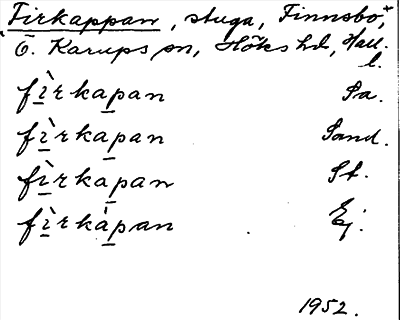 Firkappan, stuga, Finnsbo,
Ö. Karups sn, Höks hd, Hall.
l.
fìrkapan Sa.
fìrkapan Sand.
fìrkapan St.
fìrkàpan Ej.
1952.